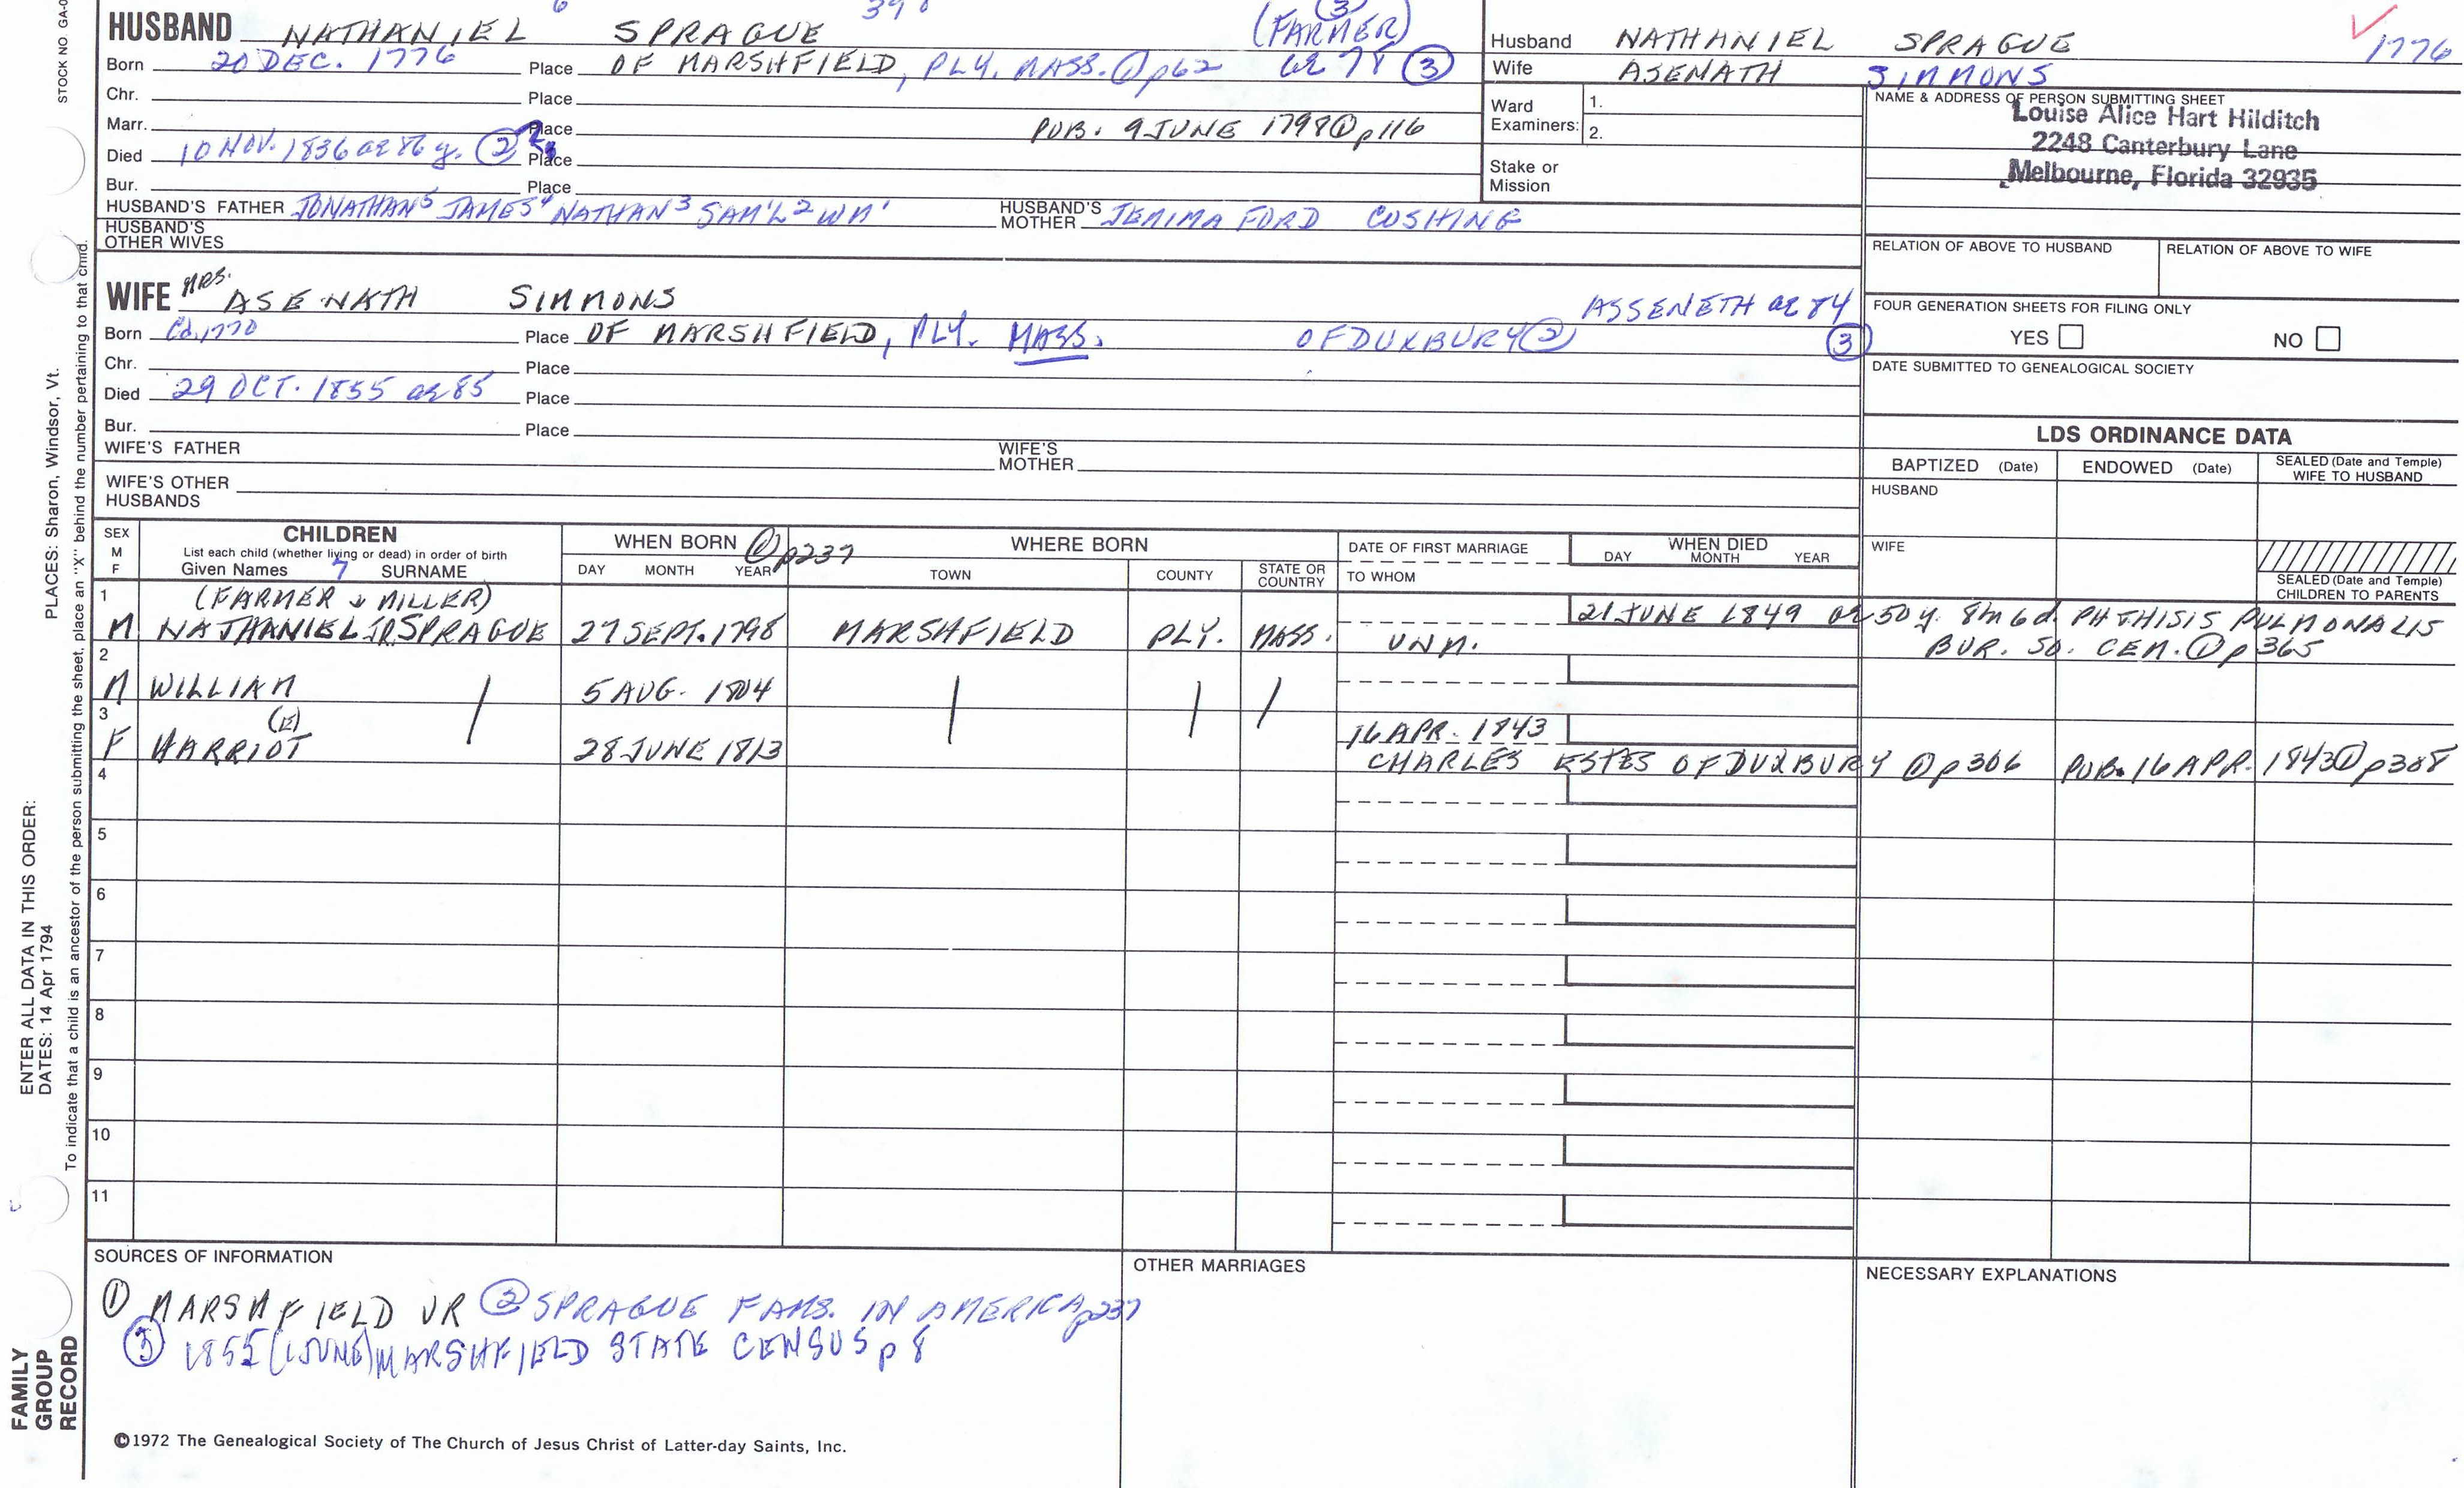 STOCK NO. GA-0
HUSBAND NATHANIEL 6 SPRAGUE 398 (FARMER) (3)
Born 20 DEC. 1776 Place OF MARSHFIELD, PLY. MASS. (1) p62 ae 78 (3)
Chr. Place
Marr. Place PUB. 9 JUNE 1798 (1) p116
Died 10 NOV. 1836 ae 86 y. (2) Place
Bur. Place
HUSBAND'S FATHER JONATHAN5 JAMES4 NATHAN3 SAM'L2 WM1 HUSBAND'S MOTHER JEMIMA FORD CUSHING
HUSBAND'S OTHER WIVES
WIFE MRS. ASENATH SIMMONS ASSENETH ae 84 (3)
Born Cd. 1770 Place OF MARSHFIELD, PLY. MASS. OF DUXBURY (2)
Chr. Place
Died 29 OCT. 1855 ae 85 Place
Bur. Place
WIFE'S FATHER WIFE'S MOTHER
WIFE'S OTHER HUSBANDS
Husband NATHANIEL SPRAGUE 1776
Wife ASENATH SIMMONS
Ward Examiners: 1.
2.
Stake or Mission
NAME & ADDRESS OF PERSON SUBMITTING SHEET
Louise Alice Hart Hilditch
2248 Canterbury Lane
Melbourne, Florida 32935
RELATION OF ABOVE TO HUSBAND RELATION OF ABOVE TO WIFE
FOUR GENERATION SHEETS FOR FILING ONLY
YES NO
DATE SUBMITTED TO GENEALOGICAL SOCIETY
LDS ORDINANCE DATA
BAPTIZED (Date) ENDOWED (Date) SEALED (Date and Temple) WIFE TO HUSBAND
HUSBAND
WIFE
SEALED (Date and Temple) CHILDREN TO PARENTS
SEX M F CHILDREN WHEN BORN (1) p237 WHERE BORN DATE OF FIRST MARRIAGE WHEN DIED
List each child (whether living or dead) in order of birth
Given Names 7 SURNAME DAY MONTH YEAR TOWN COUNTY STATE OR COUNTRY TO WHOM DAY MONTH YEAR
1 (FARMER & MILLER) 21 JUNE 1849 ae 50 y. 8m 6d. PHTHISIS PULMONALIS
M NATHANIEL JR SPRAGUE 27 SEPT. 1798 MARSHFIELD PLY. MASS. UNM. BUR. SO. CEM. (1) p365
2
M WILLIAM 5 AUG. 1804
3 (E) 16 APR. 1843
F HARRIOT 28 JUNE 1813 CHARLES ESTES OF DUXBURY (1) p306 PUB. 16 APR. 1843 (1) p388
4
5
6
7
8
9
10
11
SOURCES OF INFORMATION
(1) MARSHFIELD VR (2) SPRAGUE FAMS. IN AMERICA p237
(3) 1855 (1 JUNE) MARSHFIELD STATE CENSUS p 8
OTHER MARRIAGES
NECESSARY EXPLANATIONS
©1972 The Genealogical Society of The Church of Jesus Christ of Latter-day Saints, Inc.
FAMILY GROUP RECORD
ENTER ALL DATA IN THIS ORDER:
DATES: 14 Apr 1794
PLACES: Sharon, Windsor, Vt.
To indicate that a child is an ancestor of the person submitting the sheet, place an "X" behind the number pertaining to that child.